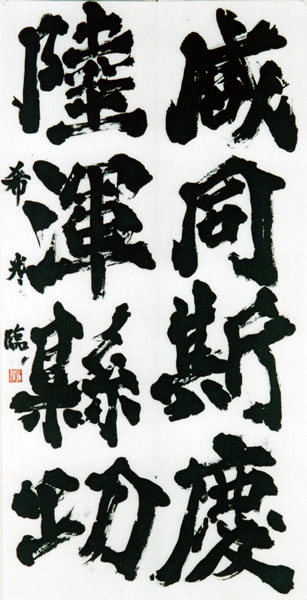 咸同斯慶
陸渾縣功
希光臨